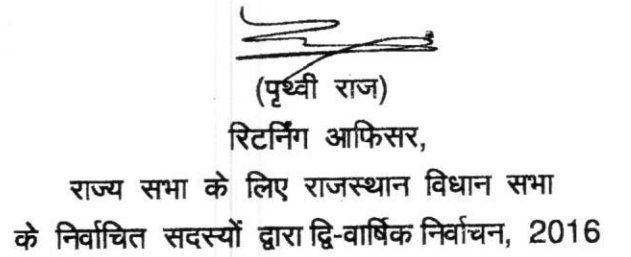 (पृथ्वी राज)
रिटर्निंग आफिसर,
राज्य सभा के लिए राजस्थान विधान सभा
के निर्वाचित सदस्यों द्वारा द्वि-वार्षिक निर्वाचन, 2016